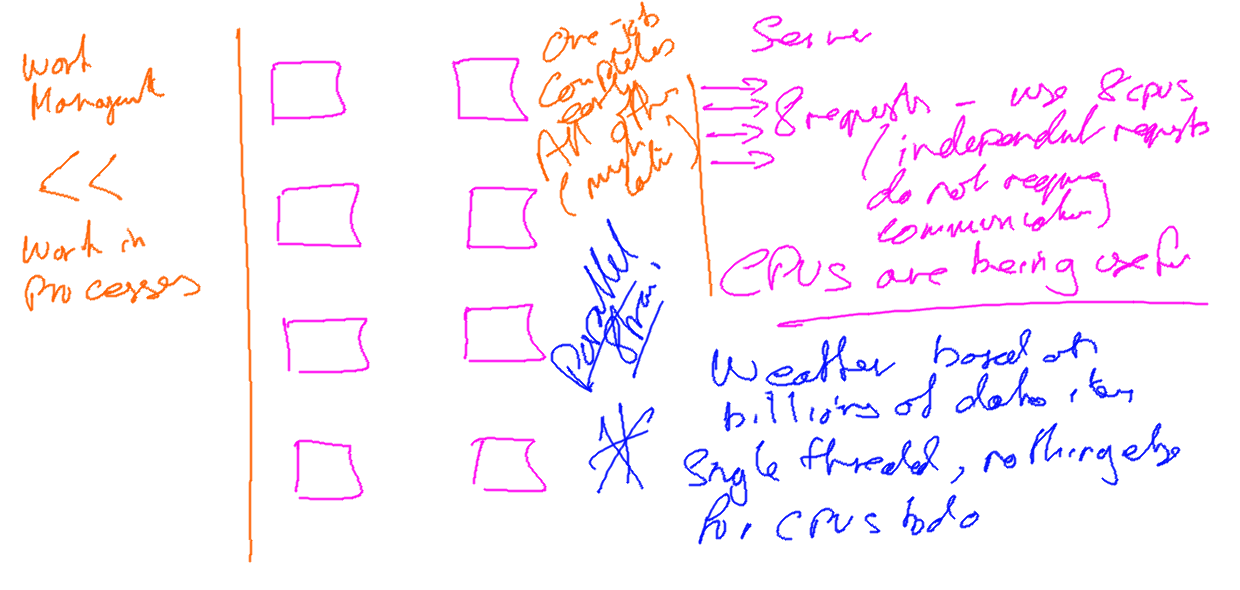 Work
Managemt
<<
Work in
Processes
One job
Completes
early
All other
(much
late)
Parallel
Server
8 requests - use 8 cpus
(independent requests
do not require
communication)
CPUs are being useful
Weather based on
billions of data items
Single thread, nothing else
for CPUs to do